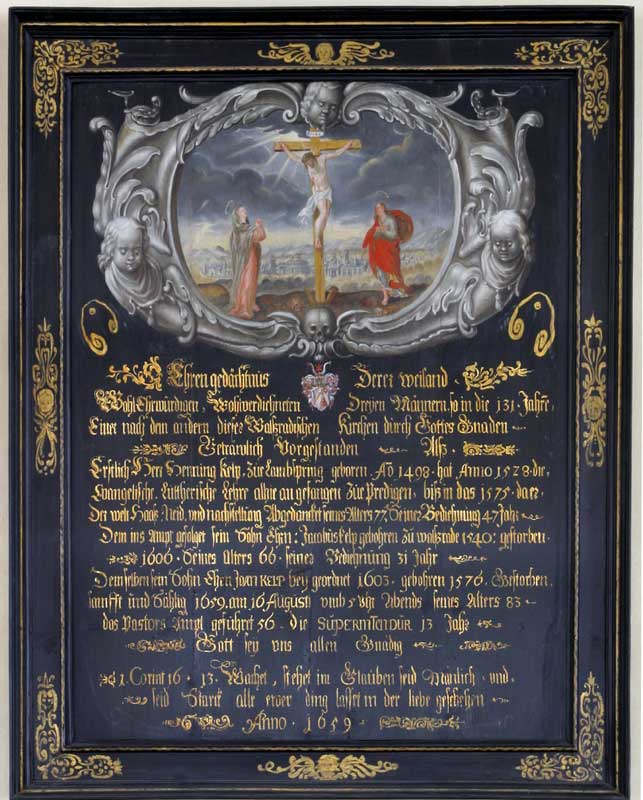 Ehren gedächtnus Derer weiland
Wohl Ehrwürdigen, Wohlverdiehneten Dreÿen Männern so in die 131. Jahre,
Einer nach dem andern dieser Walßradischen Kirchen durch Gottes Gnaden
Geträwlich Vorgestanden Alß.
Erstlich Herr Henning Kelp, Zür Lambspring geboren. Aō 1498. hat Anno 1528. die,
Evangelische, Lutherische Lehre alhie angefangen zür Predigen, biß in das 1575. da er,
Der welt Haas, Neid, und nachstellung Abgedancket seines Alters 77, Seiner Bediehnung 47 Jahr
Dem ins Ampt gefolget sein Sohn Ehrn: Jacobus Kelp gebohren zü walßrade 1540: gestorben.
1606. Seines Alters 66. seiner Bediehnung 31 Jahr
Demselben sein Sohn Ehrn Joan KELP beÿ geordnet 1603. gebohren 1576. Gestorben,
sanfft ünd Sählig 1659. am 16 AUGUSTI ümb 5 Uhr Abends seines Alters 83
das Pastors Ampt geführet 56. die SÜPERINTENDÜR 13 Jahr
Gott seÿ uns allen Gnädig
1. Corint 16. 13. Wachet, stehet im Glauben seid Mänlich, und,
seid Starck alle ewer ding lasset in der liebe geschehen
Anno 1659